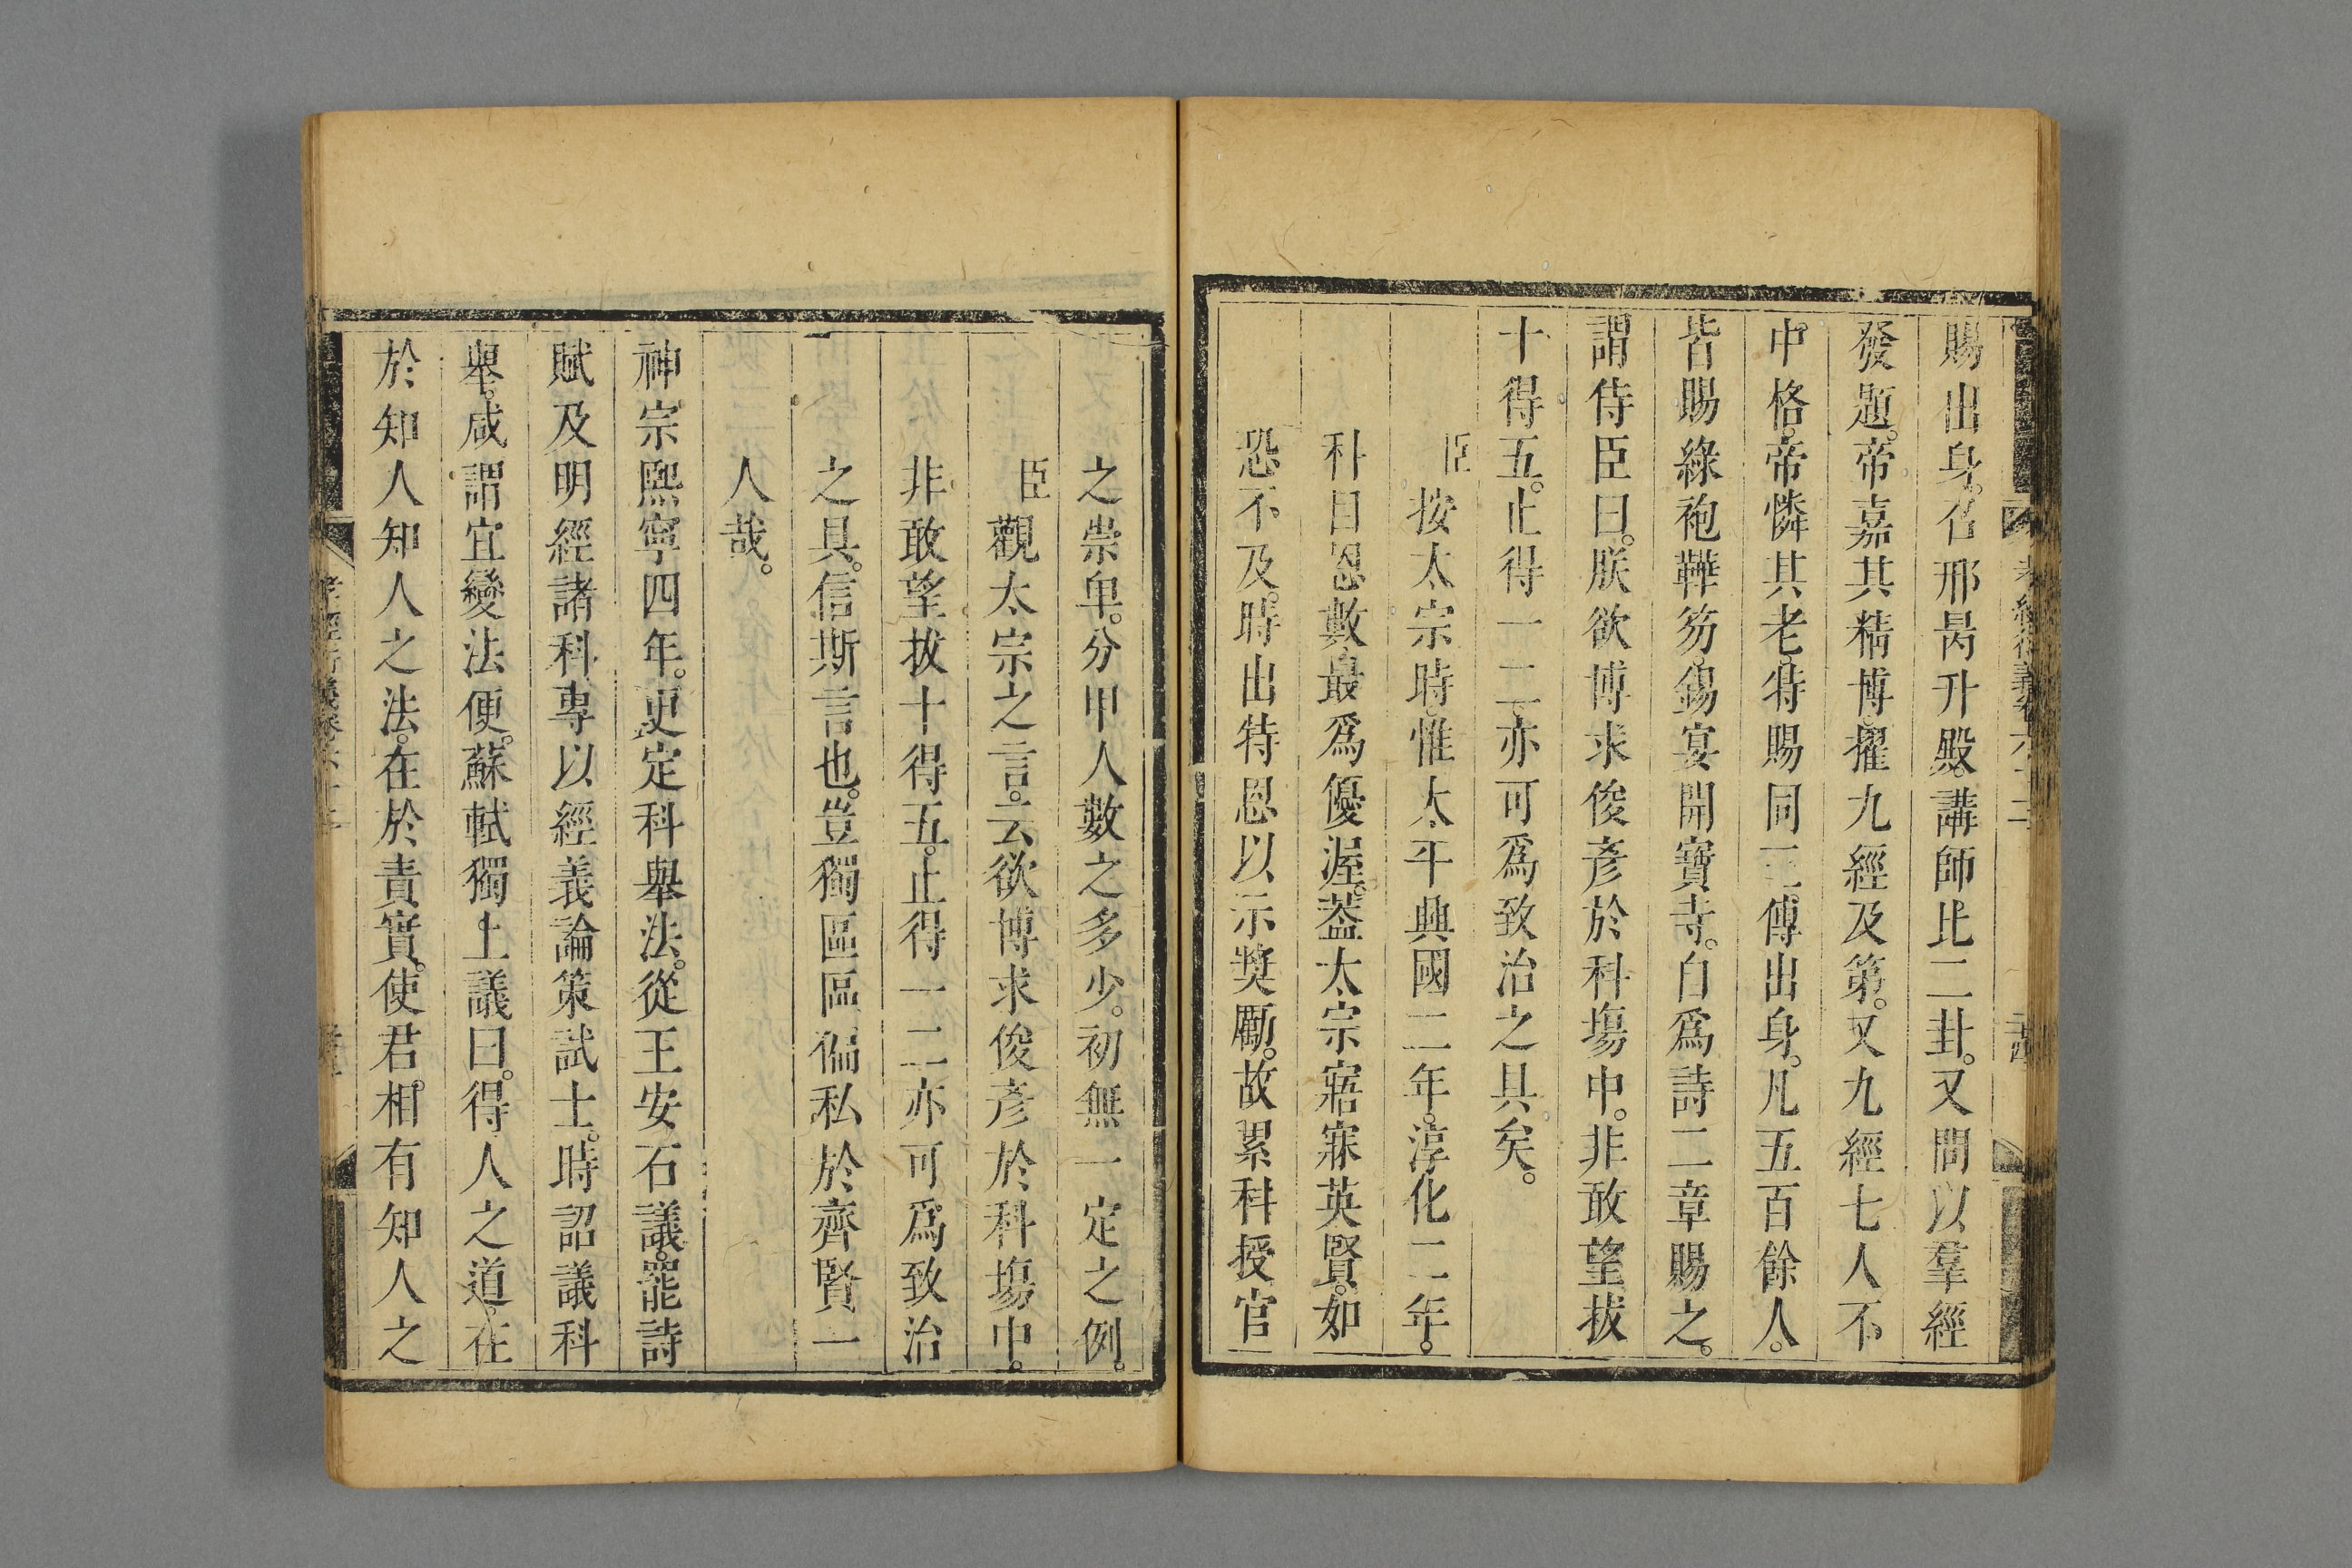 賜出身。召邢昺升殿。講師比二卦。又問以羣經
發題。帝嘉其精博。擢九經及第。又九經七人不
中格。帝憐其老。特賜同三傳出身。凡五百餘人。
皆賜綠袍鞾笏。錫宴開寶寺。自爲詩二章賜之。
謂侍臣曰。朕欲博求俊彥於科塲中。非敢望拔
十得五。止得一二。亦可爲致治之具矣。
臣按太宗時。惟太平興國二年。淳化二年。
科目恩數最爲優渥。葢太宗寤寐英賢。如
恐不及。時出特恩以示奬勵。故累科授官
之崇卑。分甲人數之多少。初無一定之例。
臣觀太宗之言。云欲博求俊彥於科塲中。
非敢望拔十得五。止得一二亦可爲致治
之具。信斯言也。豈獨區區徧私於齊賢一
人哉。
神宗熙寧四年。更定科舉法。從王安石議。罷詩
賦及明經諸科。專以經義論策試士。時詔議科
舉。咸謂宜變法便。蘇軾獨上議曰。得人之道。在
於知人。知人之法。在於責實。使君相有知人之